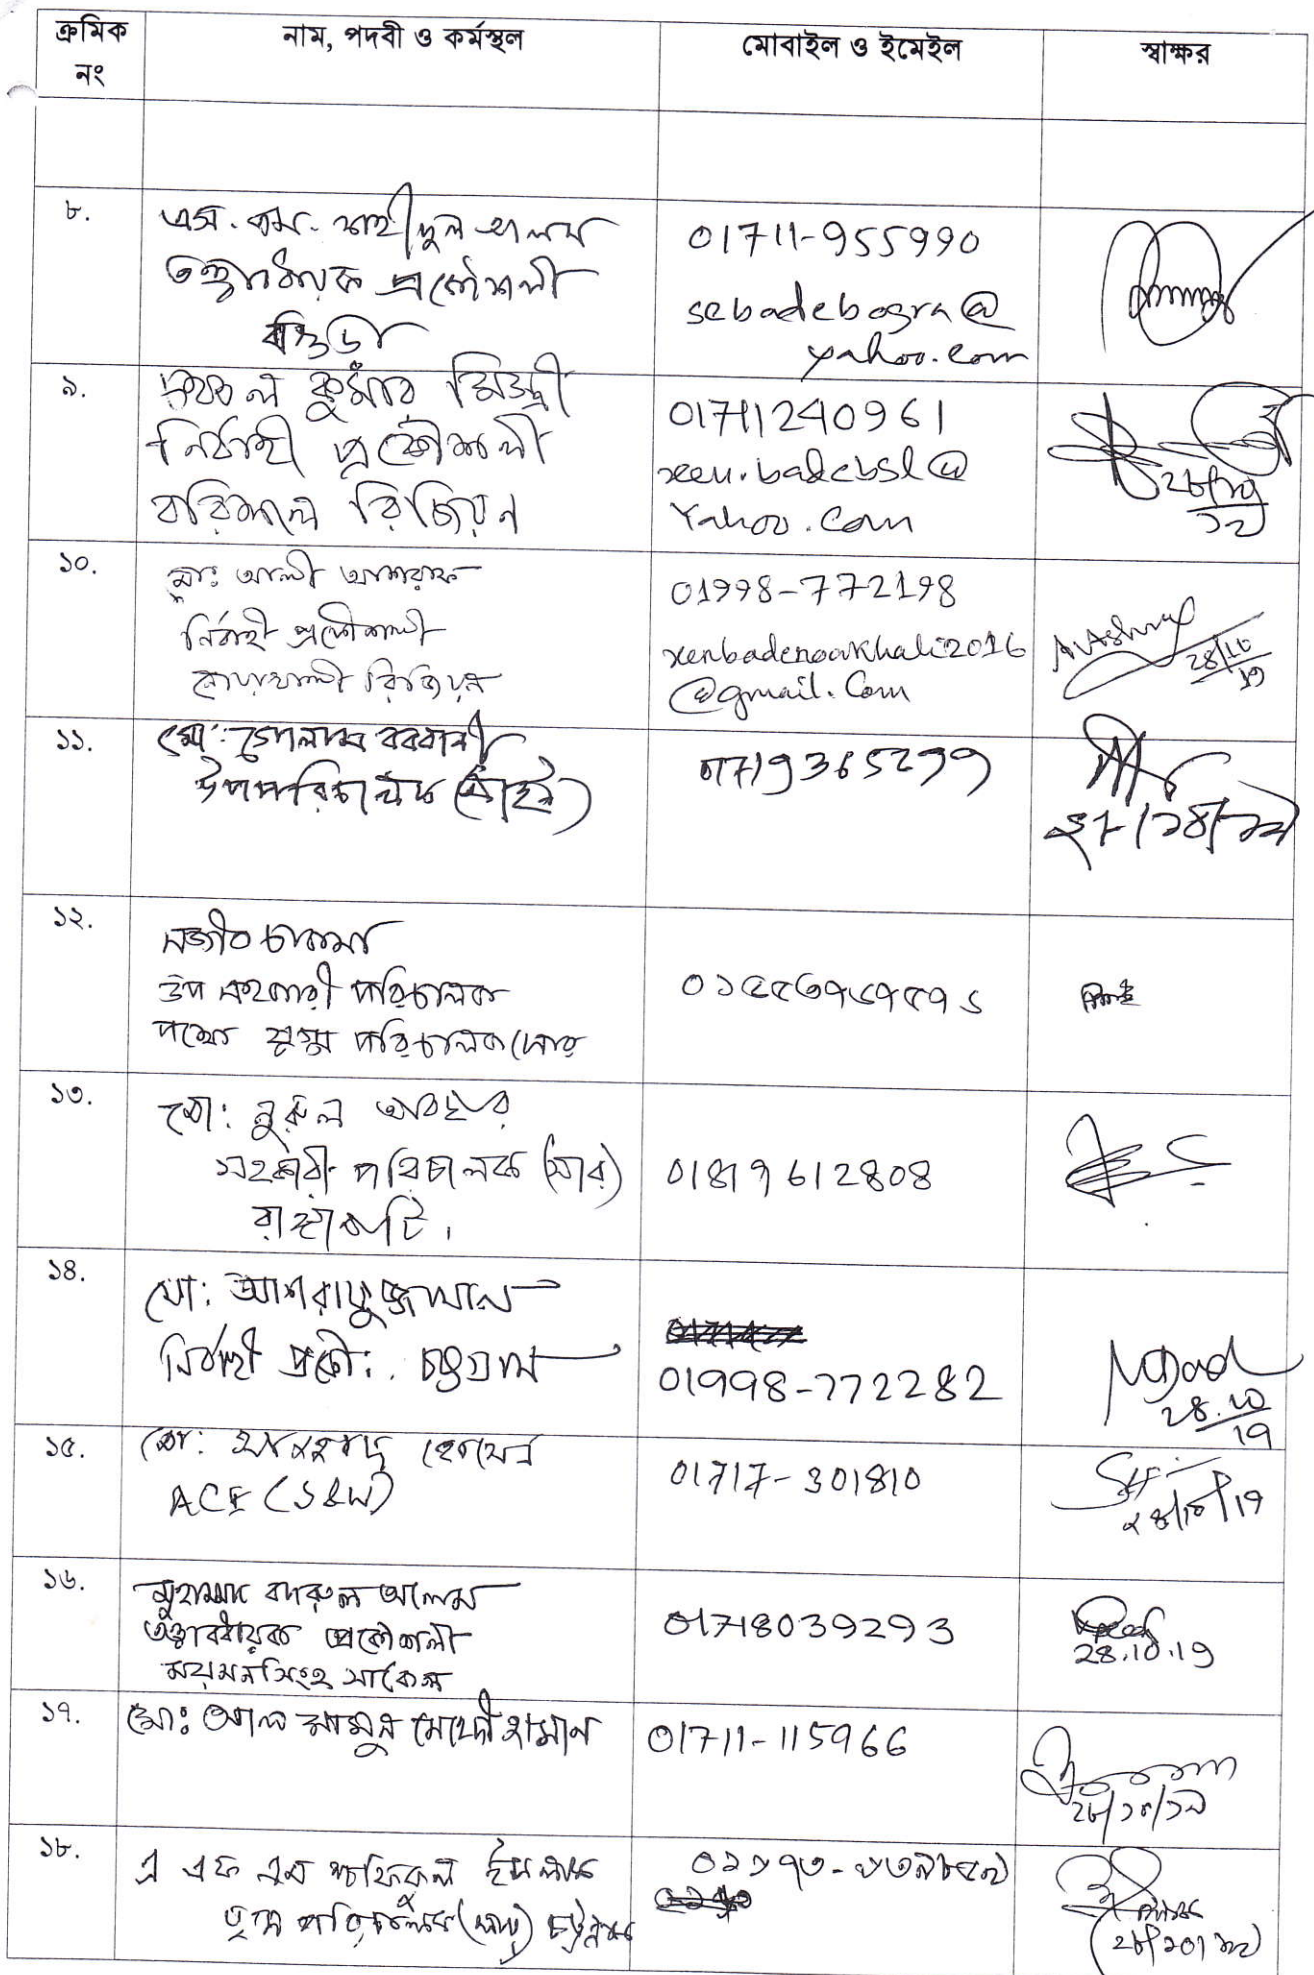 ক্রমিক নং	নাম, পদবী ও কর্মস্থল	মোবাইল ও ইমেইল	স্বাক্ষর
৮.
এস. এম. শহীদুল আলম
তত্ত্বাবধায়ক প্রকৌশলী
বগুড়া
01711-955990
sebadebogra@
yahoo.com
৯.
কুমার মিস্ত্রী
নির্বাহী প্রকৌশলী
বরিশাল রিজিয়ন
01711240961
xen.badcbsl@
Yahoo.Com
২৮/১০
১৯
১০.
মোঃ আলী আশরাফ
নির্বাহী প্রকৌশলী
নোয়াখালী রিজিয়ন
01998-772198
xenbadcnoakhali2016
@gmail.Com
28/10
19
১১.
মো: গোলাম রববানী
উপপরিচালক
01719365299
১২.
সজীব চাকমা
উপ সহকারী পরিচালক
পক্ষে যুগ্ম পরিচালক (সার
১৩.
মো: নুরুল আবছার
সহকারী পরিচালক (সার)
রাঙ্গামাটি।
01819612808
১৪.
মো: আশরাফুজ্জামান
নির্বাহী প্রকৌ: চট্টগ্রাম
01998-772282
28.10
19
১৫.
মো: হোসেন
ACE (S&W)
01717-301810
২৮/১০/19
১৬.
মুহাম্মদ বদরুল আলম
তত্ত্বাবধায়ক প্রকৌশলী
ময়মনসিংহ সার্কেল
01718039293
28.10.19
১৭.
মোঃ আল মামুন মেহেদী হাসান
01711-115966
২৮/১০/১৯
১৮.
এ এফ এম শফিকুল ইসলাম
যুগ্ম পরিচালক (সার) চট্টগ্রাম
(২৮/১০/১৯)